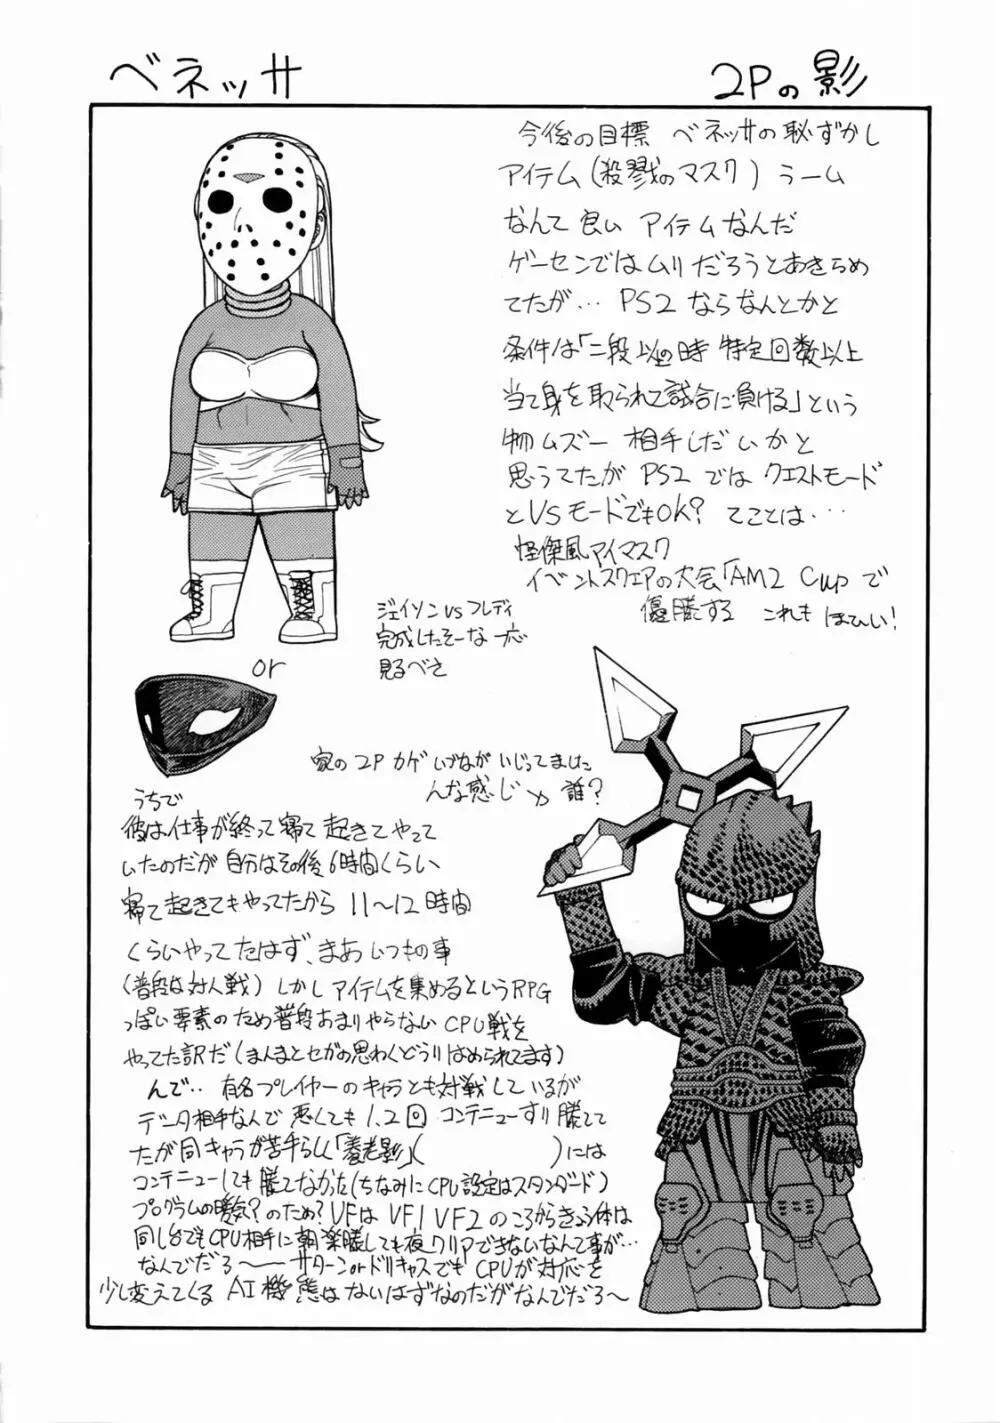 ベネッサ
2Pの影
今後の目標 ベネッサの恥ずかし
アイテム(殺戮のマスク) うーム
なんて良い アイテムなんだ
ゲーセンではムリだろうとあきらめ
てたが… PS2 ならなんとかと
条件は「二段以上の時 特定回数以上
当て身を取られて試合に負ける」という
物ムズー 相手しだいかと
思うてたが PS2 では クエストモード
とVSモードでもOK? てことは…
怪傑風アイマスク
イベントスクエアの大会「AM2 Cup で
優勝する これも ほしい!
ジェイソンVSフレディ
完成したそーな 一応
見るべき
or
家の 2P カゲ いづながいじってました
んな感じ 誰?
うちで
彼は仕事が終って寝て 起きてやって
いたのだが 自分はその後6時間くらい
寝て起きてもやってたから 11〜12時間
くらいやってたはず、まあ いつもの事
(普段は対人戦) しかし アイテムを集めるという RPG
っぽい要素のため普段あまりやらない CPU戦を
やってた訳だ (まんまとセガの思わくどうりはめられてます)
んで‥ 有名プレイヤーのキャラとも対戦しているが
データ相手なんで 悪くても 1.2回 コンテニューすりゃ勝てて
たが同キャラが苦手らしく「養老影」( )には
コンテニューしても 勝てなかった(ちなみにCPU設定はスタンダード)
プログラムの暖気?のため? VFは VF1 VF2 のころからきょう体は
同じ台でもCPU相手に朝楽勝しても夜クリアできないなんて事が…
なんでだろ〜 サターンorドリキャスでも CPUが対応を
少し変えてくる AI機態はないはずなのだがなんでだろ〜